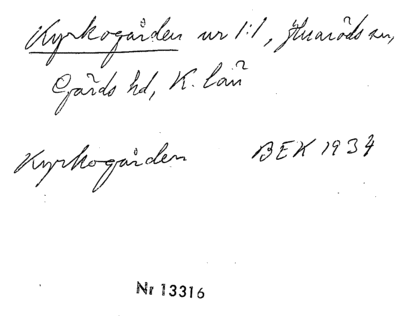 Kyrkogården nr 1:1, Huaröds sn,
Gärds hd, K. län
Kyrkogården BEK 1934
Nr 13316